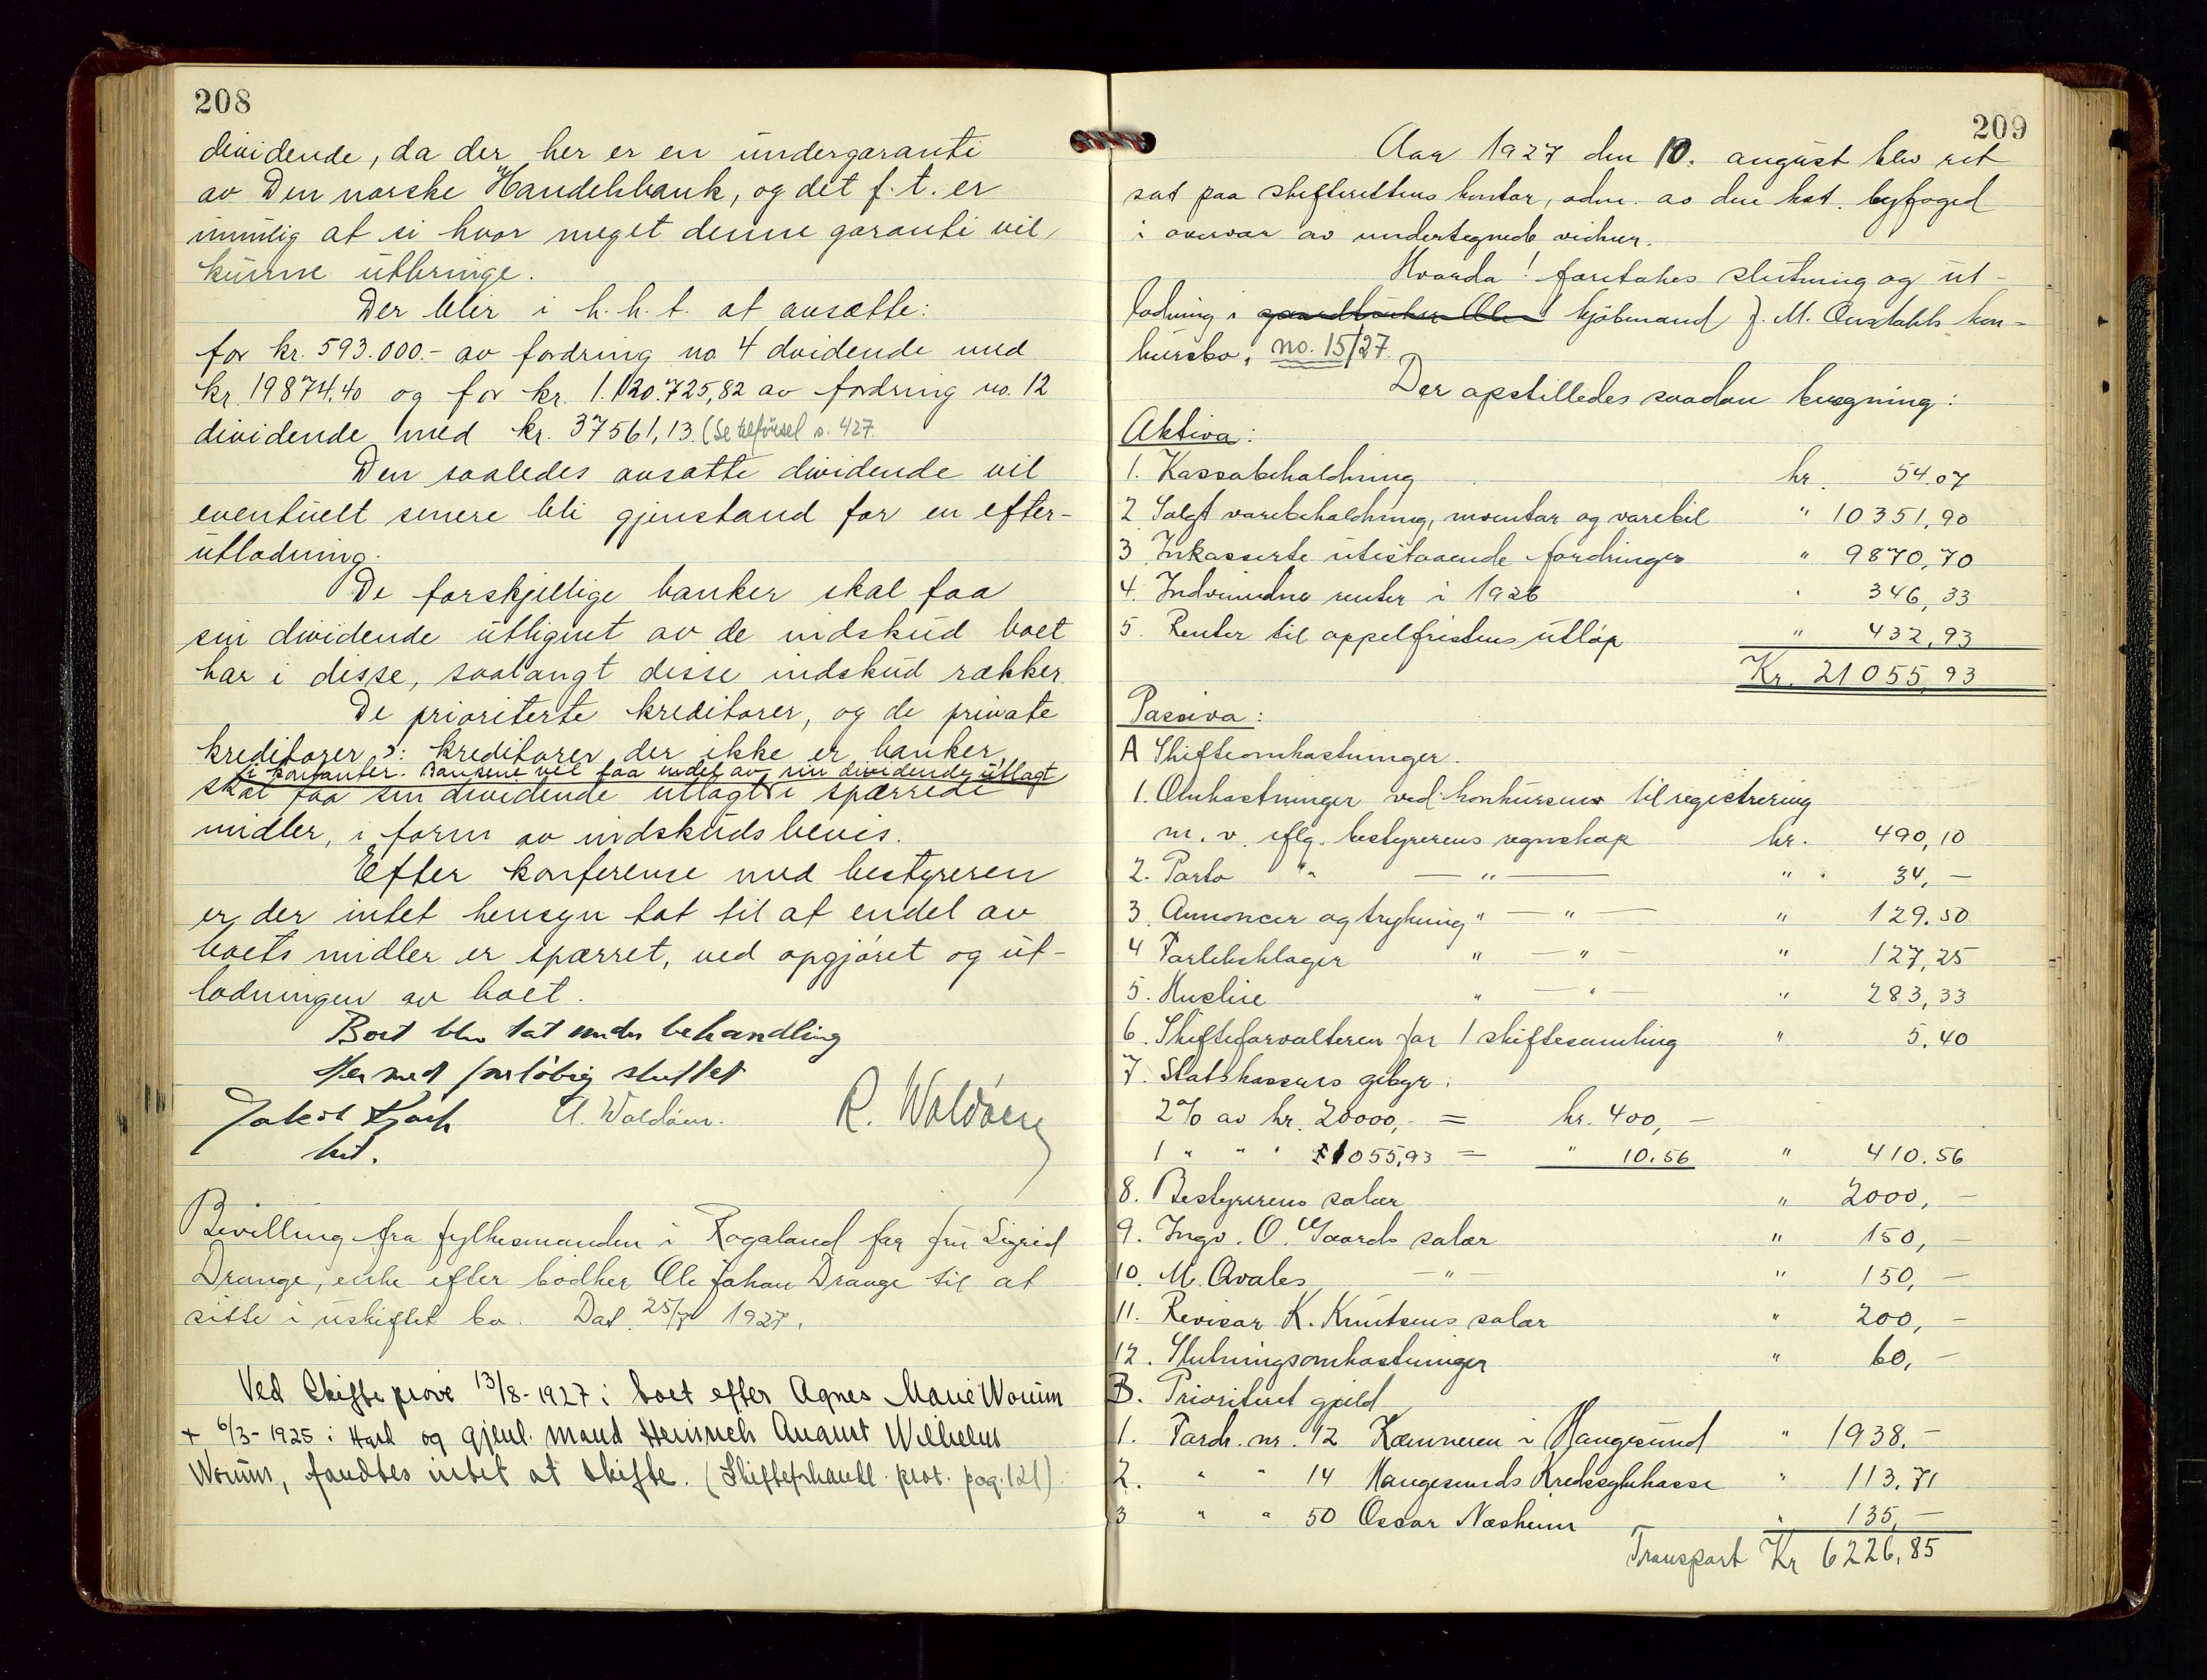 208
dividende, da der her er en undergaranti
av Den norske Handelsbank, og det f. t. er
umulig at si hvor meget denne garanti vil
kunne utbringe.
Der blir i h. h. t. at ansætte:
for kr. 593.000.- av fordring no 4 dvidende med
kr. 19874,40 og for kr. 1.120.725,82 av fordring no. 12
dividende med kr. 37561,13 (Se tilførsel s. 427.
Den saaledes ansatte dividende vil
eventuelt senere bli gjenstand for en efter-
utlodning.
De forskjellige banker skal faa
sin dividende utlignet av de indskud boet
har i disse, saalangt disse indskud rækker.
De prioriterte kreditorer, og de private
kreditorer ɔ: kreditorer der ikke er banker,
i kontanter. Bankene vil faa endel av sin dividende utlagt
skal faa sin dividende utlagt i spærrede
midler, i form av indskudsbevis.
Efter konferense med bestyreren
er der intet hensyn tat til at endel av
boets midler er spærret, ved opgjøret og ut-
lodningen av boet.
Boet blev tat under behandling
Hermed forløbig sluttet
Jakob Kjøsh A. Waldøen. R. Waldøen
kst.
Bevilling fra fylkesmanden i Rogaland for fru Sigrid
Drange, enke efter bødker Ole Johan Drange til at
sitte i uskiftet bo. Dat. 25/7 1927.
Ved Skifteprøve 13/8-1927 i boet efter Agnes Marie Worum
+ 6/3-1925 i Hasl og gjenl. mand Heinrich August Wilhelm
Worum, fandtes intet at skifte. (Skifteforhandl. prot. pag. 121)
209
Aar 1927 den 10. august blev ret
sat paa skifterettens kontor, adm. av den kst. byfoged
i overvær av undertegnede vidner.
Hvorda! foretokes slutning og ut-
lodning i kjøbmand J. M. Austdahls kon-
kursbo, no. 15/27.
Der opstilledes saadan beregning:
Aktiva:
1. Kassabeholdning kr. 54.07
2 Solgt varebeholdning, inventar og varebil " 10351,90
3 Inkasserte utestaaende fordringer " 9870,70
4. Indvundne renter i 1926 " 346,33
5. Renter til appelfristens utløp " 432,93
Kr. 21055,93
Passiva:
A Skifteomkostninger.
1. Omkostninger ved konkursens til registrering
m. v. iflg. bestyrerens regnskap kr. 490,10
2. Porto " — " — " 34, —
3. Annoncer og trykning " — " — " 129.50
4 Forliksklager " — " — " 127,25
5. Husleie " — " — " 283,33
6. Skifteforvalteren for 1 skiftesamling " 5,40
7. Statskassens gebyr:
2% av kr. 20000,- = kr. 400, —
1 " " " 1055,93 = " 10.56 " 410.56
8. Bestyrerens salær " 2000, —
9. Ingv. O. Gaards salær " 150, —
10. M. Kvales — " — " 150, —
11. Revisor K. Knutsens salær " 200, —
12. Slutningsomkostninger " 60, —
B. Prioritert gjæld
1. Fordr. nr. 12 Kæmneren i Haugesund " 1938.-
2. " " 14 Haugesunds Kredssykekasse " 113.71
3 " " 50 Oscar Næsheim " 135,—
Transport Kr 6226,85